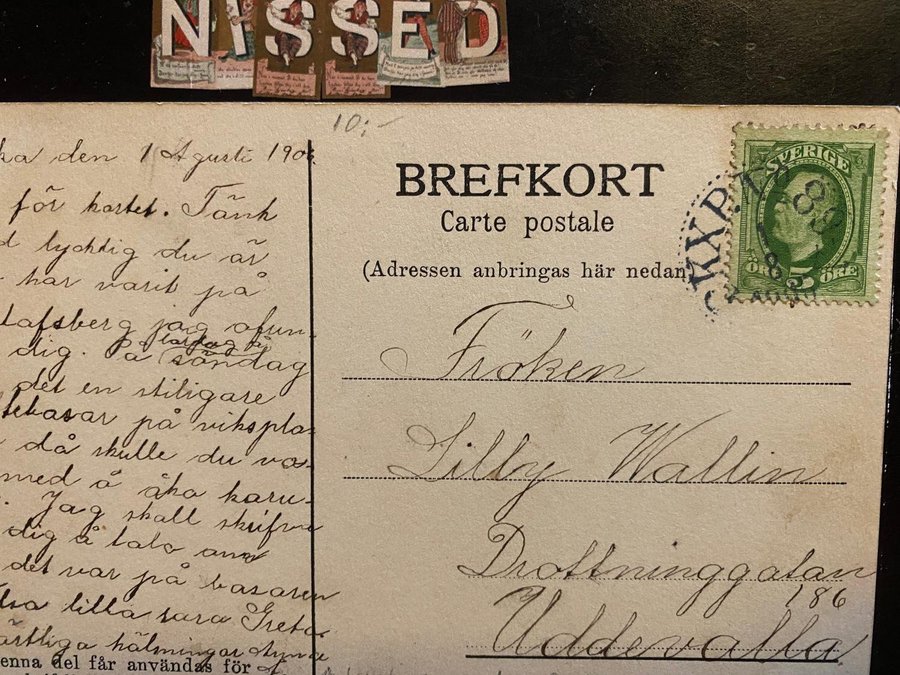 NISSED
10;-
den 1 Agusti 190
för kortet. Tänk
lycktig du är
har varit på
tafsberg jag afun-
dig. På lördag å
söndag
det en stiligare
basar på vikspla-
då skulle du va-
med å åka karu-
Jag skall skrifva
dig å tala om
det var på basaren
lilla rara Greta
hälsningar
enna del får användas för
BREFKORT
Carte postale
(Adressen anbringas här nedan
SVERIGE
ÖRE 5 ÖRE
PKXP.
89
1
8
Fröken
Lilly Wallin
Drottninggatan
186
Uddevalla